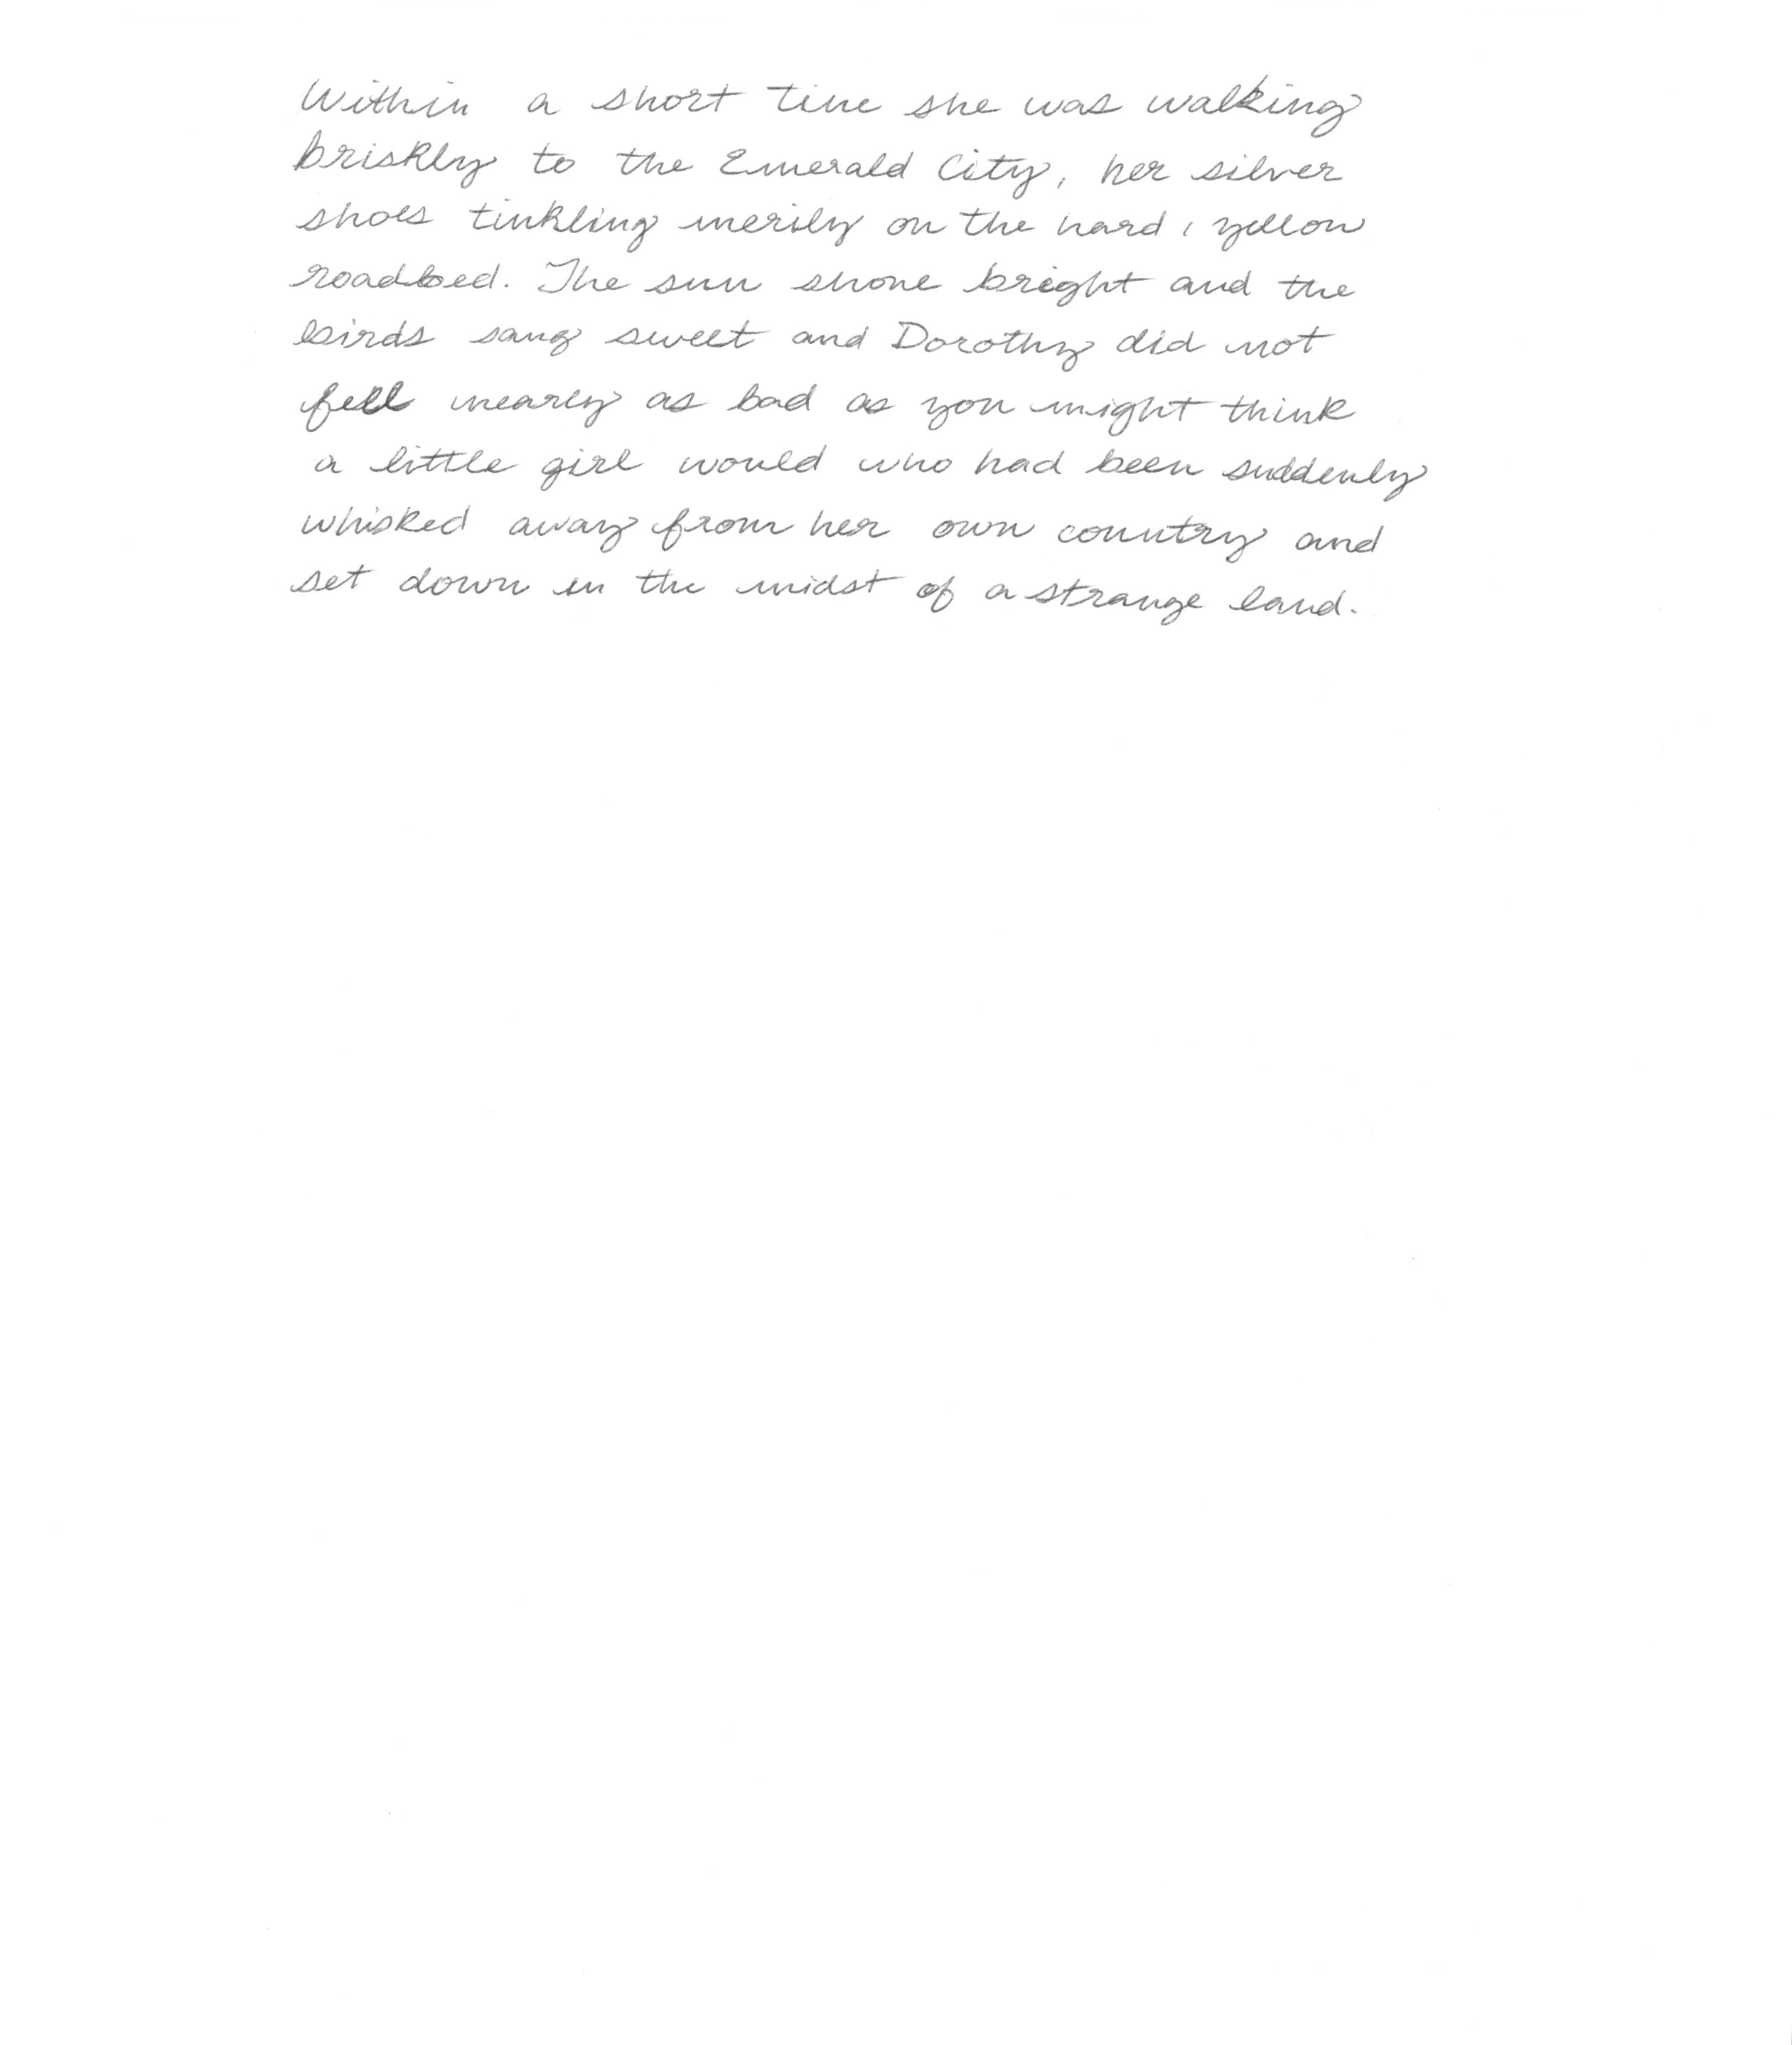 Within a short time she was walking
briskly to the Emerald City, her silver
shoes tinkling merily on the hard, yellow
roadbed. The sun shone bright and the
birds sang sweet and Dorothy did not
fell nearly as bad as you might think
a little girl would who had been suddenly
whisked away from her own country and
set down in the midst of a strange land.